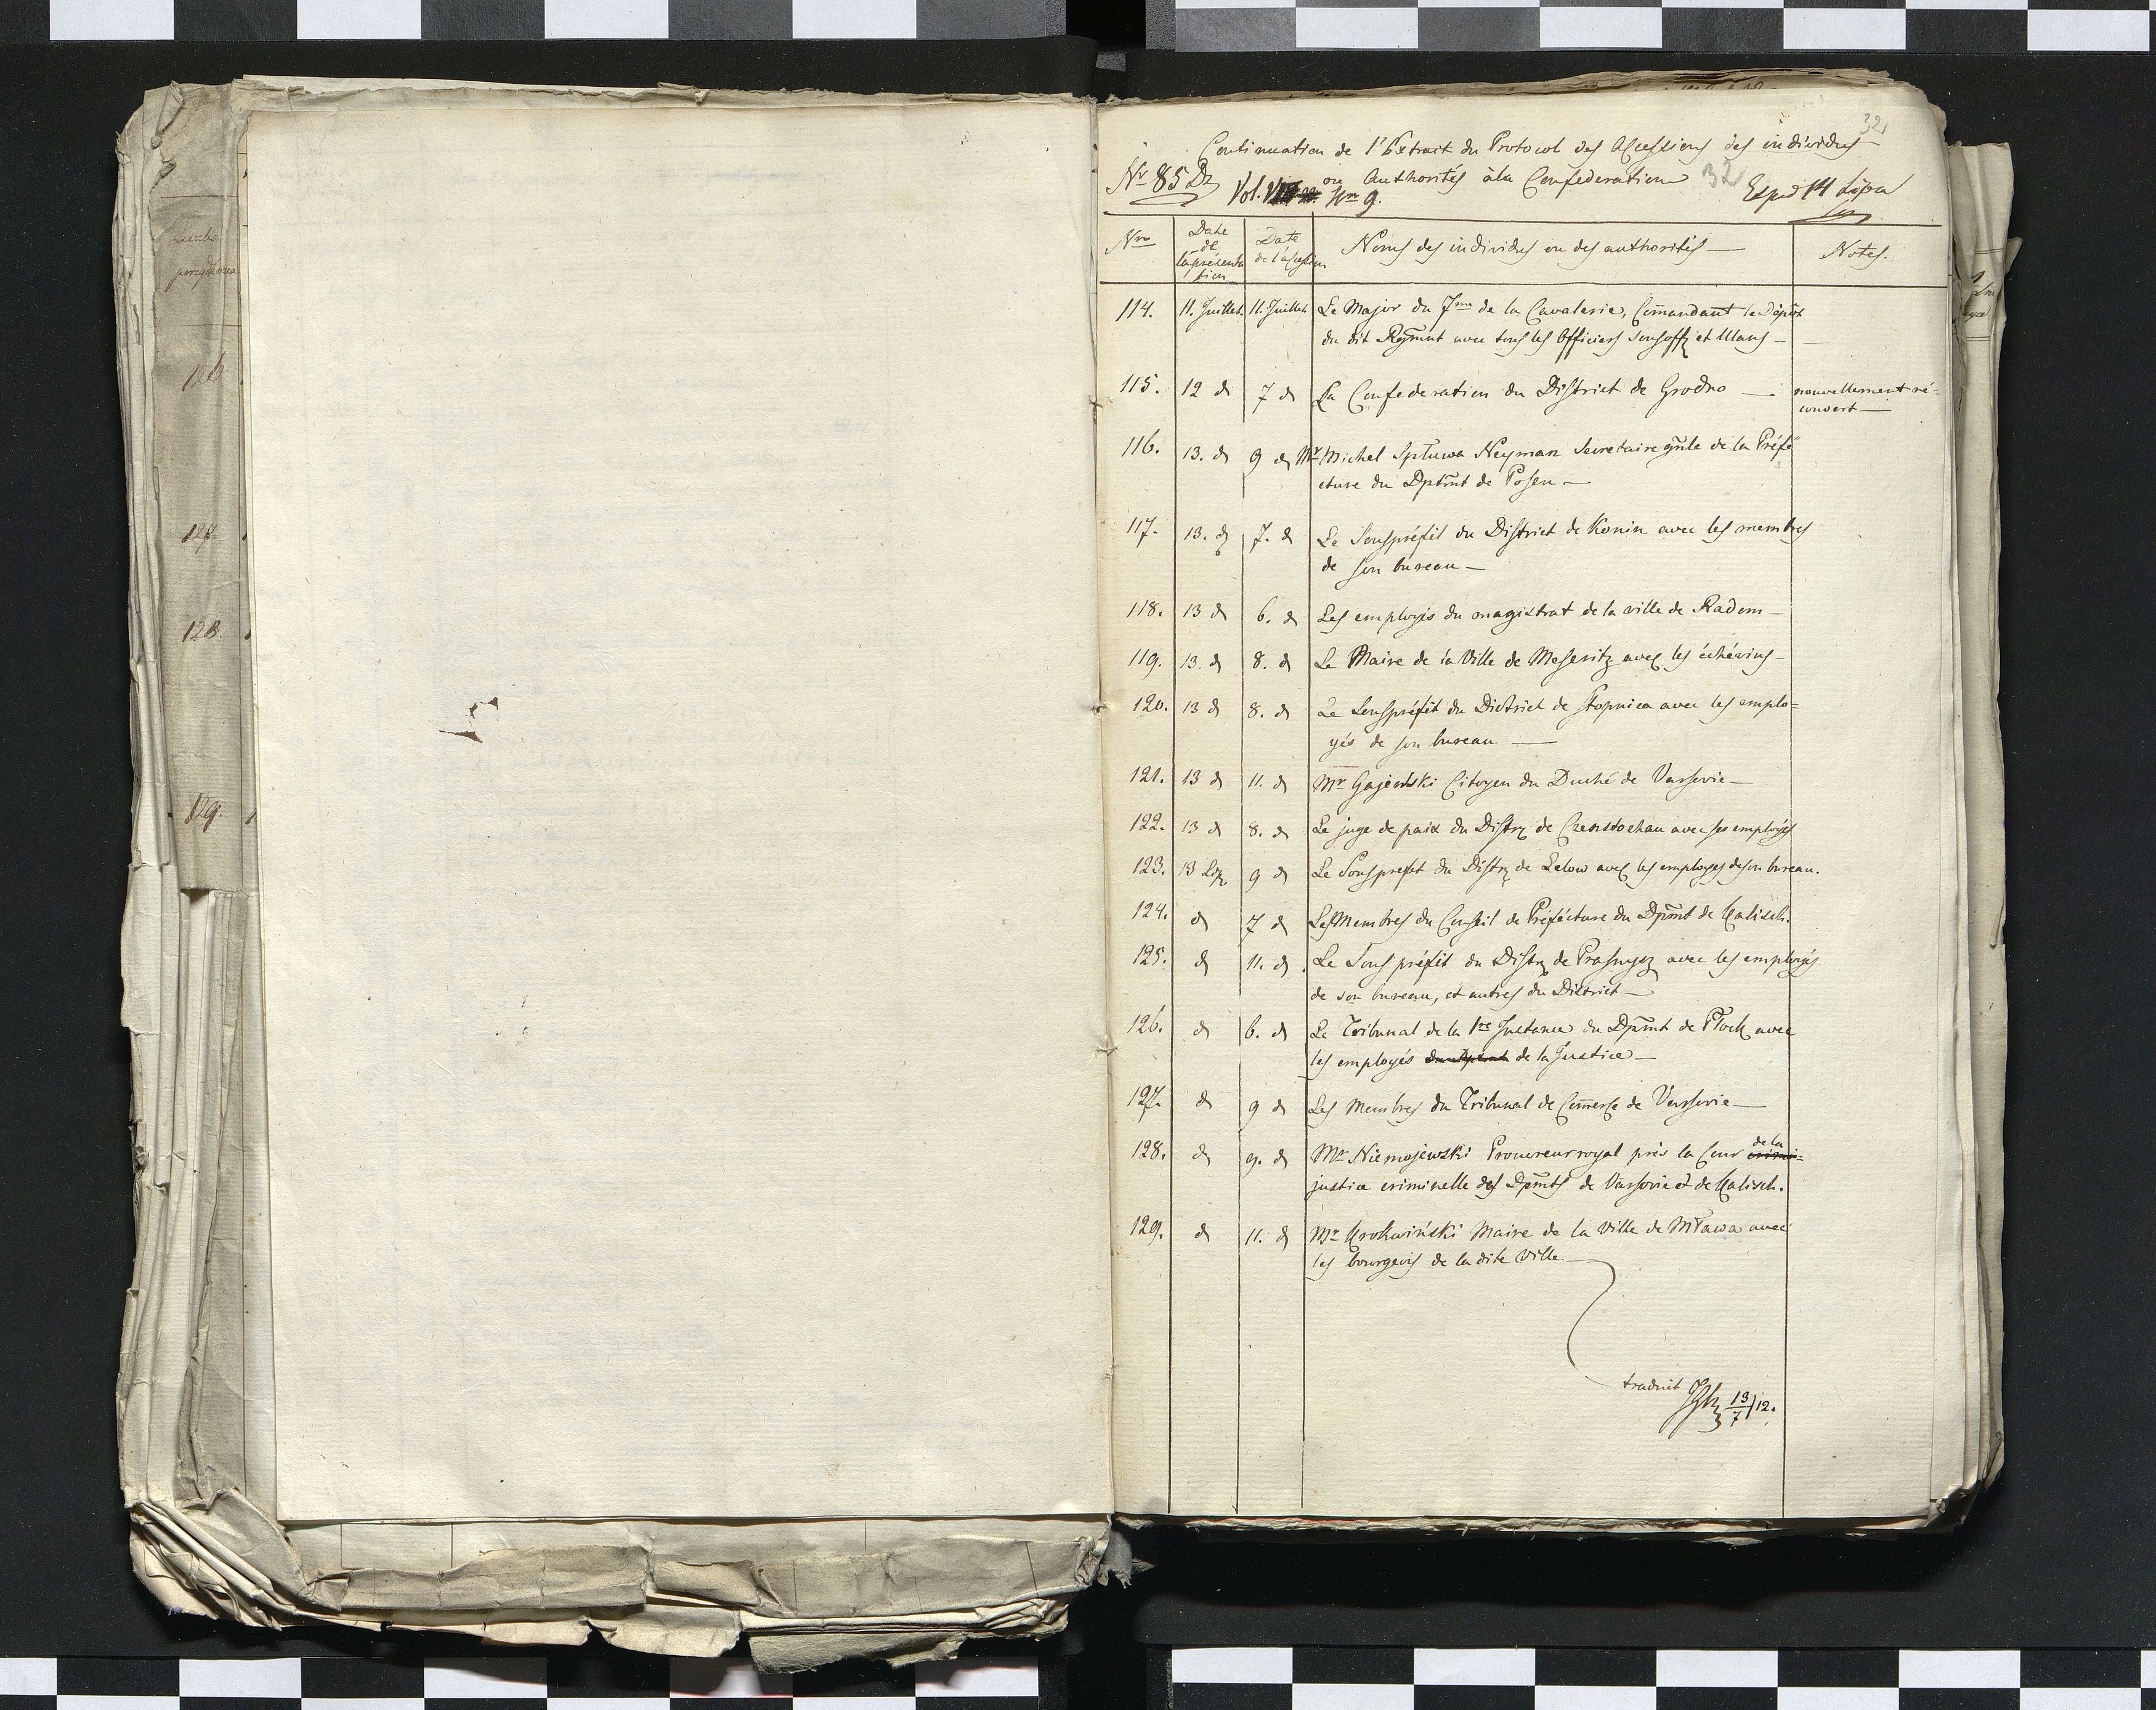 32
Continuation de l'Extrait du Protocol des Acessions des individus
ou Authorités à la Confederation
32
Nr 85 Dz
Vol. Nro 9.
Exped 14 Lipca
Nro
Date de la présentation
Date de l'acession
Noms des individus ou des authorités —
Notes.
114. 11. Juillet. 11. Juillet Le Major du 7me de la Cavalerie, Com̄andant le Dépôt
du dit Regm̄nt avec tous les Officiers Sousoff. et Ulans —
115. 12 d 7 d La Confederation du District de Grodno — nouvellement ré=
couvert —
116. 13. d 9 d Mr Michel Neyman Secretaire gn̄le de la Préfé
cture du Dptm̄nt de Posen —
117. 13. d 7. d Le Souspréfet du District de Konin avec les membres
de son bureau —
118. 13 d 6. d Les employés du magistrat de la ville de Radom —
119. 13. d 8. d Le Maire de la Ville de Meseritz avec les échévins —
120. 13 d 8. d Le Souspréfet du District de Stopnica avec les emplo=
yés de son bureau —
121. 13 d 11. d Mr Gajewski Citoyen du Duché de Varsovie —
122. 13 d 8. d Le juge de paix du Distr. de Czenstochau avec ses employés
123. 13 Lip. 9 d Le Souspréfet du Distr. de Lelow avec les employés de son bureau.
124. d 7 d Les Membres du Conseil de Préfécture du Dpm̄nt de Kalisch.
125. d 11. d Le Sous préfet du Distr. de Prasnysz avec les employés
de son bureau, et autres du District —
126. d 6. d Le Tribunal de la 1re Instance du Dpm̄nt de Płock avec
les employés de la Justice —
127. d 9 d Les Membres du Tribunal de Com̄erce de Varsovie —
128. d 9. d Mr Niemojewski Procureur royal près la Cour de la
justice criminelle des Dpm̄ts de Varsovie et de Kalisch.
129. d 11. d Mr Krokwiński Maire de la Ville de Mława avec
les bourgeois de la dite Ville
traduit
13/7 12.
Liczba
porządkowa
126
127.
128.
129.